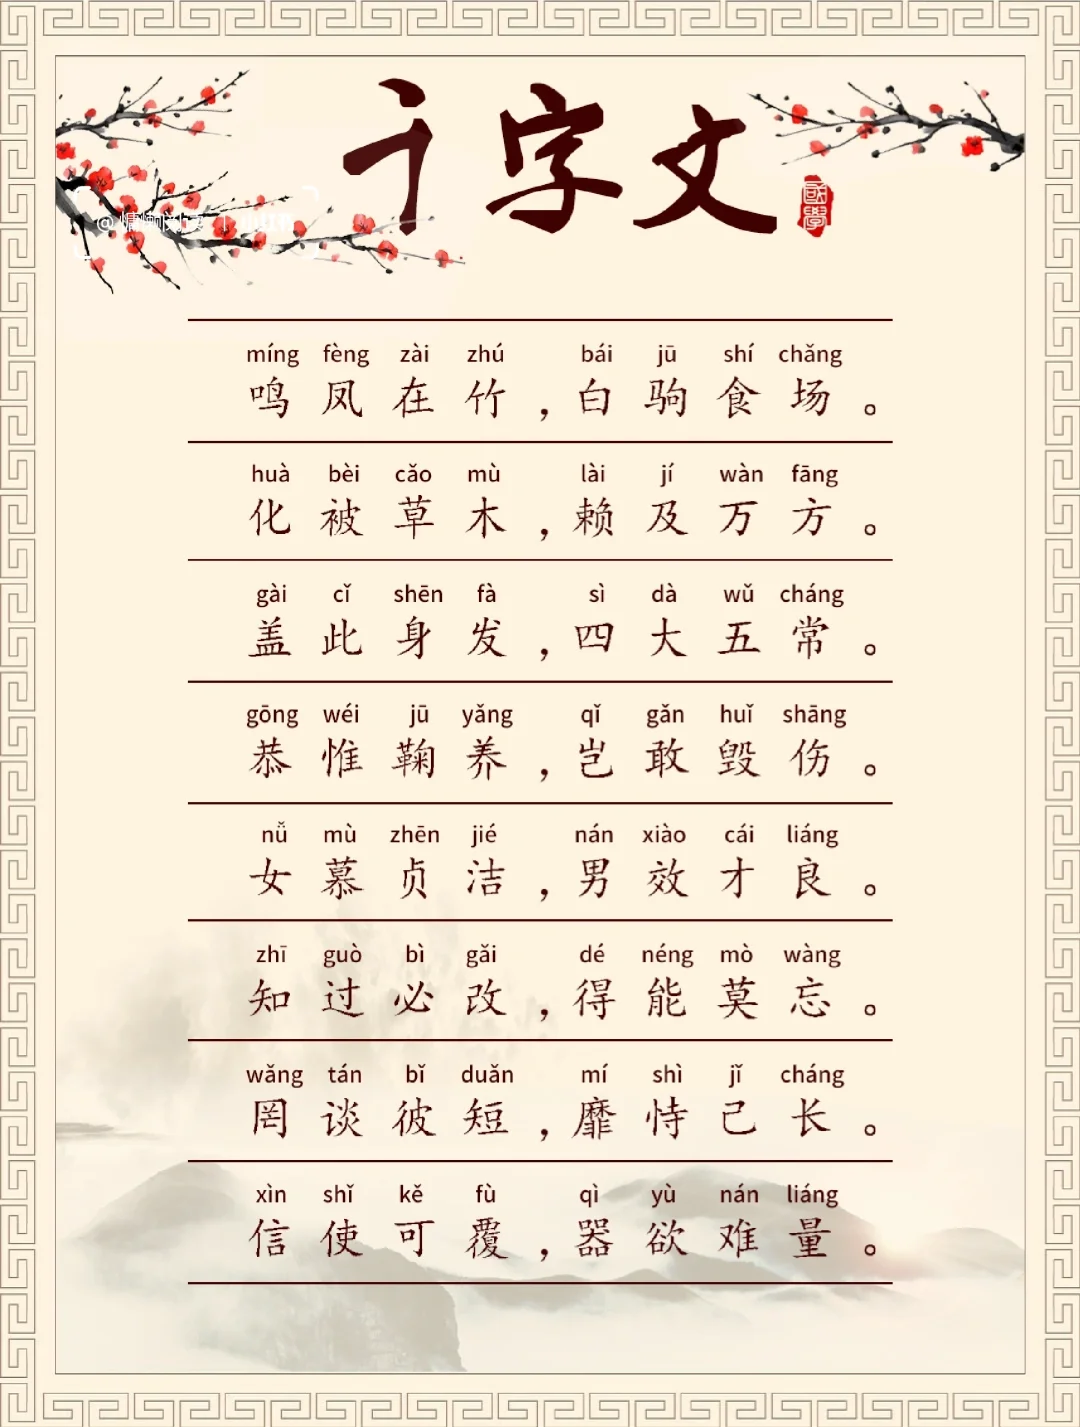 千字文
國學
míng fèng zài zhú bái jū shí chǎng
鸣凤在竹，白驹食场。
huà bèi cǎo mù lài jí wàn fāng
化被草木，赖及万方。
gài cǐ shēn fà sì dà wǔ cháng
盖此身发，四大五常。
gōng wéi jū yǎng qǐ gǎn huǐ shāng
恭惟鞠养，岂敢毁伤。
nǚ mù zhēn jié nán xiào cái liáng
女慕贞洁，男效才良。
zhī guò bì gǎi dé néng mò wàng
知过必改，得能莫忘。
wǎng tán bǐ duǎn mí shì jǐ cháng
罔谈彼短，靡恃己长。
xìn shǐ kě fù qì yù nán liáng
信使可覆，器欲难量。